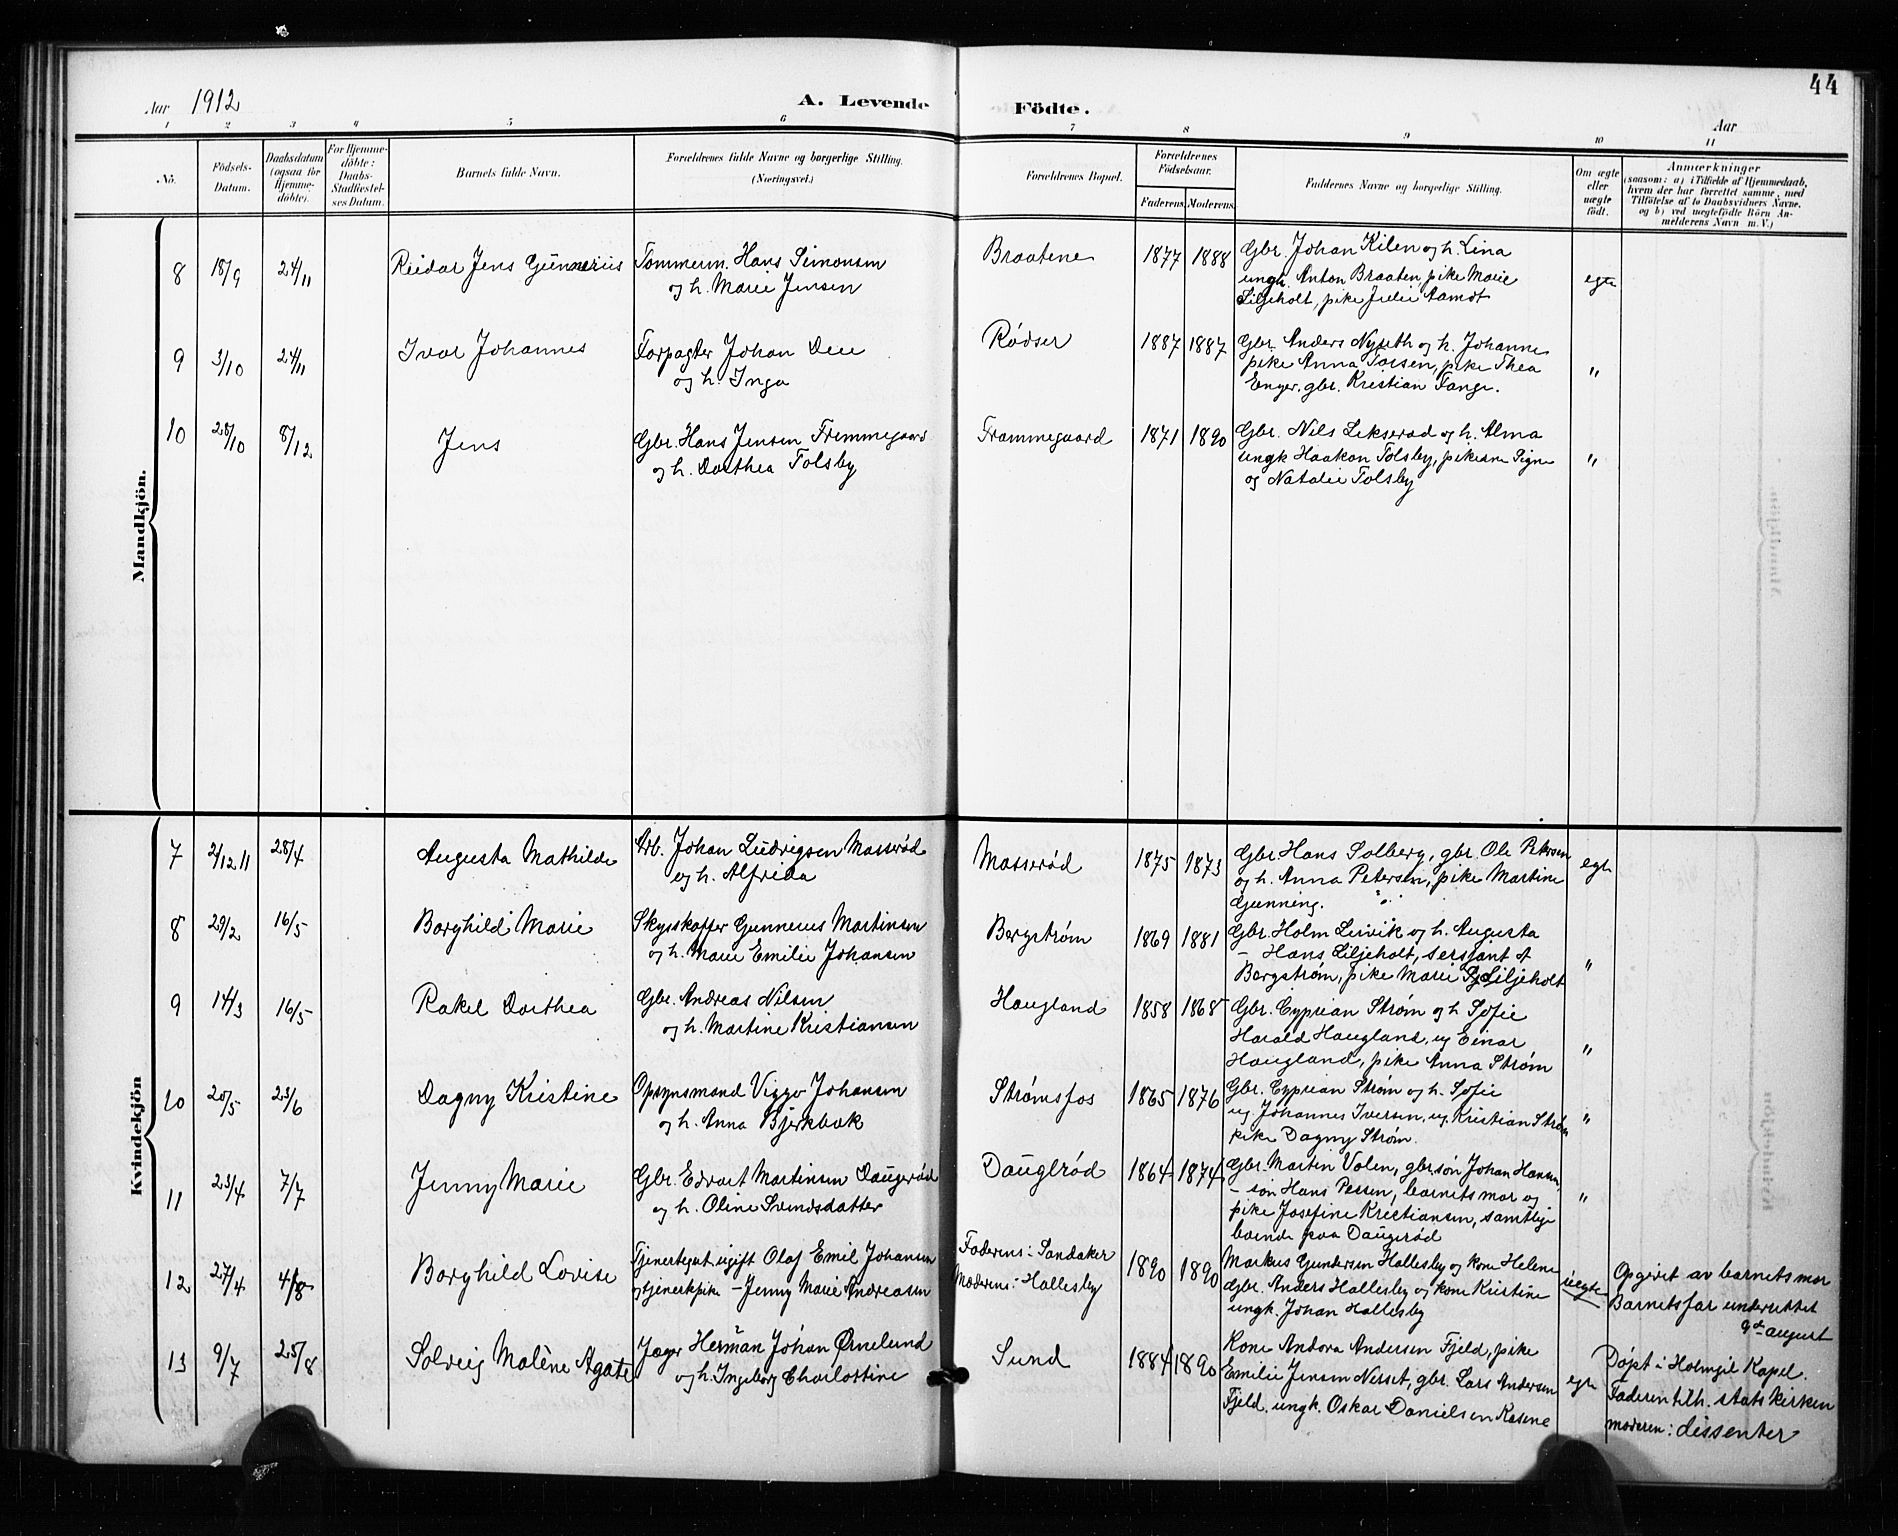 44
Aar 1912
A. Levende Födte.
Aar
1 2 3 4 5 6 7 8 9 10 11
No.
Födsels-
Datum.
Daabsdatum
(ogsaa for
Hjemme-
döbte).
For Hjemme-
döbte:
Daabs-
Stadfæstel-
ses Datum.
Barnets fulde Navn.
Forældrenes fulde Navne og borgerlige Stilling.
(Næringsvei.)
Forældrenes Bopæl.
Forældrenes
Födselsaar.
Faderens. Moderens.
Faddernes Navne og borgerlige Stilling.
Om ægte
eller
uægte
födt.
Anmærkninger
(saasom: a) i Tilfælde af Hjemmedaab,
hvem der har forrettet samme, med
Tilföielse af to Daabsvidners Navne,
og b) ved uægtefödte Börn An-
melderens Navn m. V.)
Mandkjön.
8 18/9 24/11 Reidar Jens Gunnerius
Tømmerm. Hans Simonsen
og h. Marie Jensen
Braatene 1877 1888
Gbr. Johan Kilen og h. Lina
ungk. Anton Braaten, pike Marie
Liljeholt, pike Julie Aamot
egte
9 3/10 24/11 Ivar Johannes
Forpagter Johan Dee
og h. Inga
Rødser 1887 1887
Gbr. Anders Nyseth og h. Johanne
pike Anna Torsen, pike Thea
Enger, gbr. Kristian Tange.
"
10 28/10 8/12 Jens
Gbr. Hans Jensen Fremmegaard
og h. Dorthea Tolsby
Frammegaard 1871 1890
Gbr. Nils Lekserød og h. Alma
ungk Haakon Tolsby, pikerne Signe
og Natalie Tolsby
"
Kvindekjön
7 2/12 11 28/4 Augusta Mathilde
Arb. Johan Ludvigsen Masserød
og h. Alfreda
Masserød 1875 1873
Gbr. Hans Solberg, gbr. Ole Petersen
og h. Anna Petersen, pike Martine
Gunning.
egte
8 29/2 16/5 Borghild Marie
Skysskaffer Gunnerius Martinsen
og h. Marie Emilie Johansen
Bergstrøm 1869 1881
Gbr. Holm Lervik og h. Augusta
- Hans Liljeholt, sersjant A
Bergstrøm, pike Marie Liljeholt
"
9 14/3 16/5 Rakel Dorthea
Gbr. Andreas Nilsen
og h. Martine Kristiansen
Haugland 1858 1868
Gbr. Cyprian Strøm og h Sofie
Harald Haugland, ug Einar
Haugland, pike Anna Strøm
"
10 20/5 23/6 Dagny Kristine
Opsynsmand Viggo Johansen
og h. Anna Bjerkbæk
Strømsfos 1865 1876
Gbr. Cyprian Strøm og h. Sofie
ug. Johannes Iversen, ug. Kristian Strøm
pike Dagny Strøm.
"
11 23/4 7/7 Jenny Marie
Gbr. Edvart Martinsen Daugerød
og h. Oline Svendsdatter
Dauglrød 1864 1874
Gbr. Martin Volen, gbr.søn Johan Hansen,
- søn Hans Pessen, barnets mor og
pike Josefine Kristiansen, samtlige
boende paa Daugerød
"
12 27/4 4/8 Borghild Lovise
Tjenestegut ugift Olaf Emil Johansen
og tjenestepike - Jenny Marie Andreasen
Faderens: Sandaker
Moderens: Hallesby
1890 1890
Markus Gundersen Hallesby og kone Helene
Gbr. Anders Hallesby og kone Kristine
ungk. Johan Hallesby
uegte
Opgivet av barnets mor
Barnets far underrettet
9de august
13 9/7 25/8 Solveig Malène Agate
Jæger Herman Johan Ørnelund
og h. Ingeborg Charlottine
Sund 1884 1890
Kone Andora Andersen Fjeld, pike
Emilie Jensen Nesset, gbr. Lars Andersen
Fjeld, ungk. Oskar Danielsen Kasene
egte
Døpt i Holmgil Kapel.
Faderen tilh. statskirken
moderen: dissenter